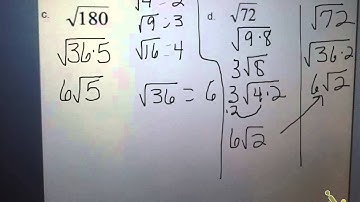 c. √180
√36·5
6√5
√4 = 2
√9 = 3
√16 = 4
√36 = 6
d. √72
√9·8
3√8
3√4·2
·2
6√2
√72
√36·2
6√2